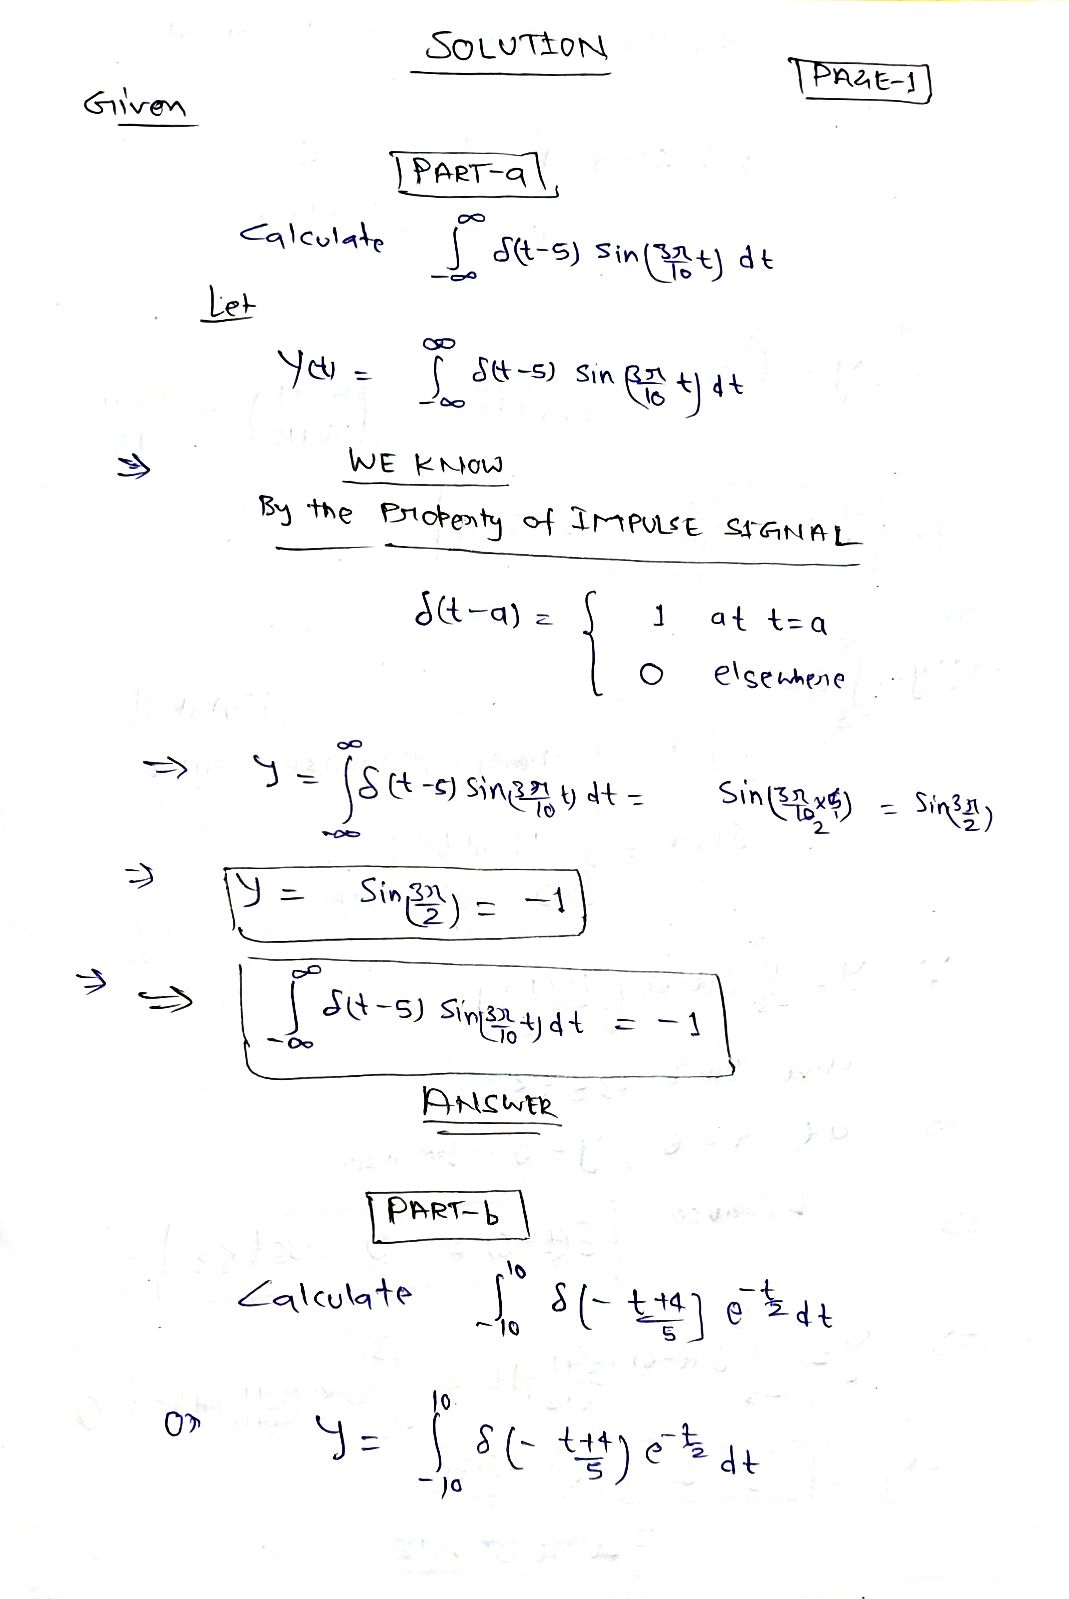 SOLUTION
PAGE-1
Given
PART-a
Calculate ∫_{-∞}^{∞} δ(t-5) sin(3π/10 t) dt
Let
y(t) = ∫_{-∞}^{∞} δ(t-5) sin(3π/10 t) dt
⇒ WE KNOW
By the Property of IMPULSE SIGNAL
δ(t-a) = { 1 at t=a
0 elsewhere
⇒ y = ∫_{-∞}^{∞} δ(t-5) sin(3π/10 t) dt = sin(3π/10 × 5) = sin(3π/2)
⇒ y = sin(3π/2) = -1
⇒ ⇒ ∫_{-∞}^{∞} δ(t-5) sin(3π/10 t) dt = -1
ANSWER
PART-b
Calculate ∫_{-10}^{10} δ(- (t+4)/5) e^{-t/2} dt
or y = ∫_{-10}^{10} δ(- (t+4)/5) e^{-t/2} dt